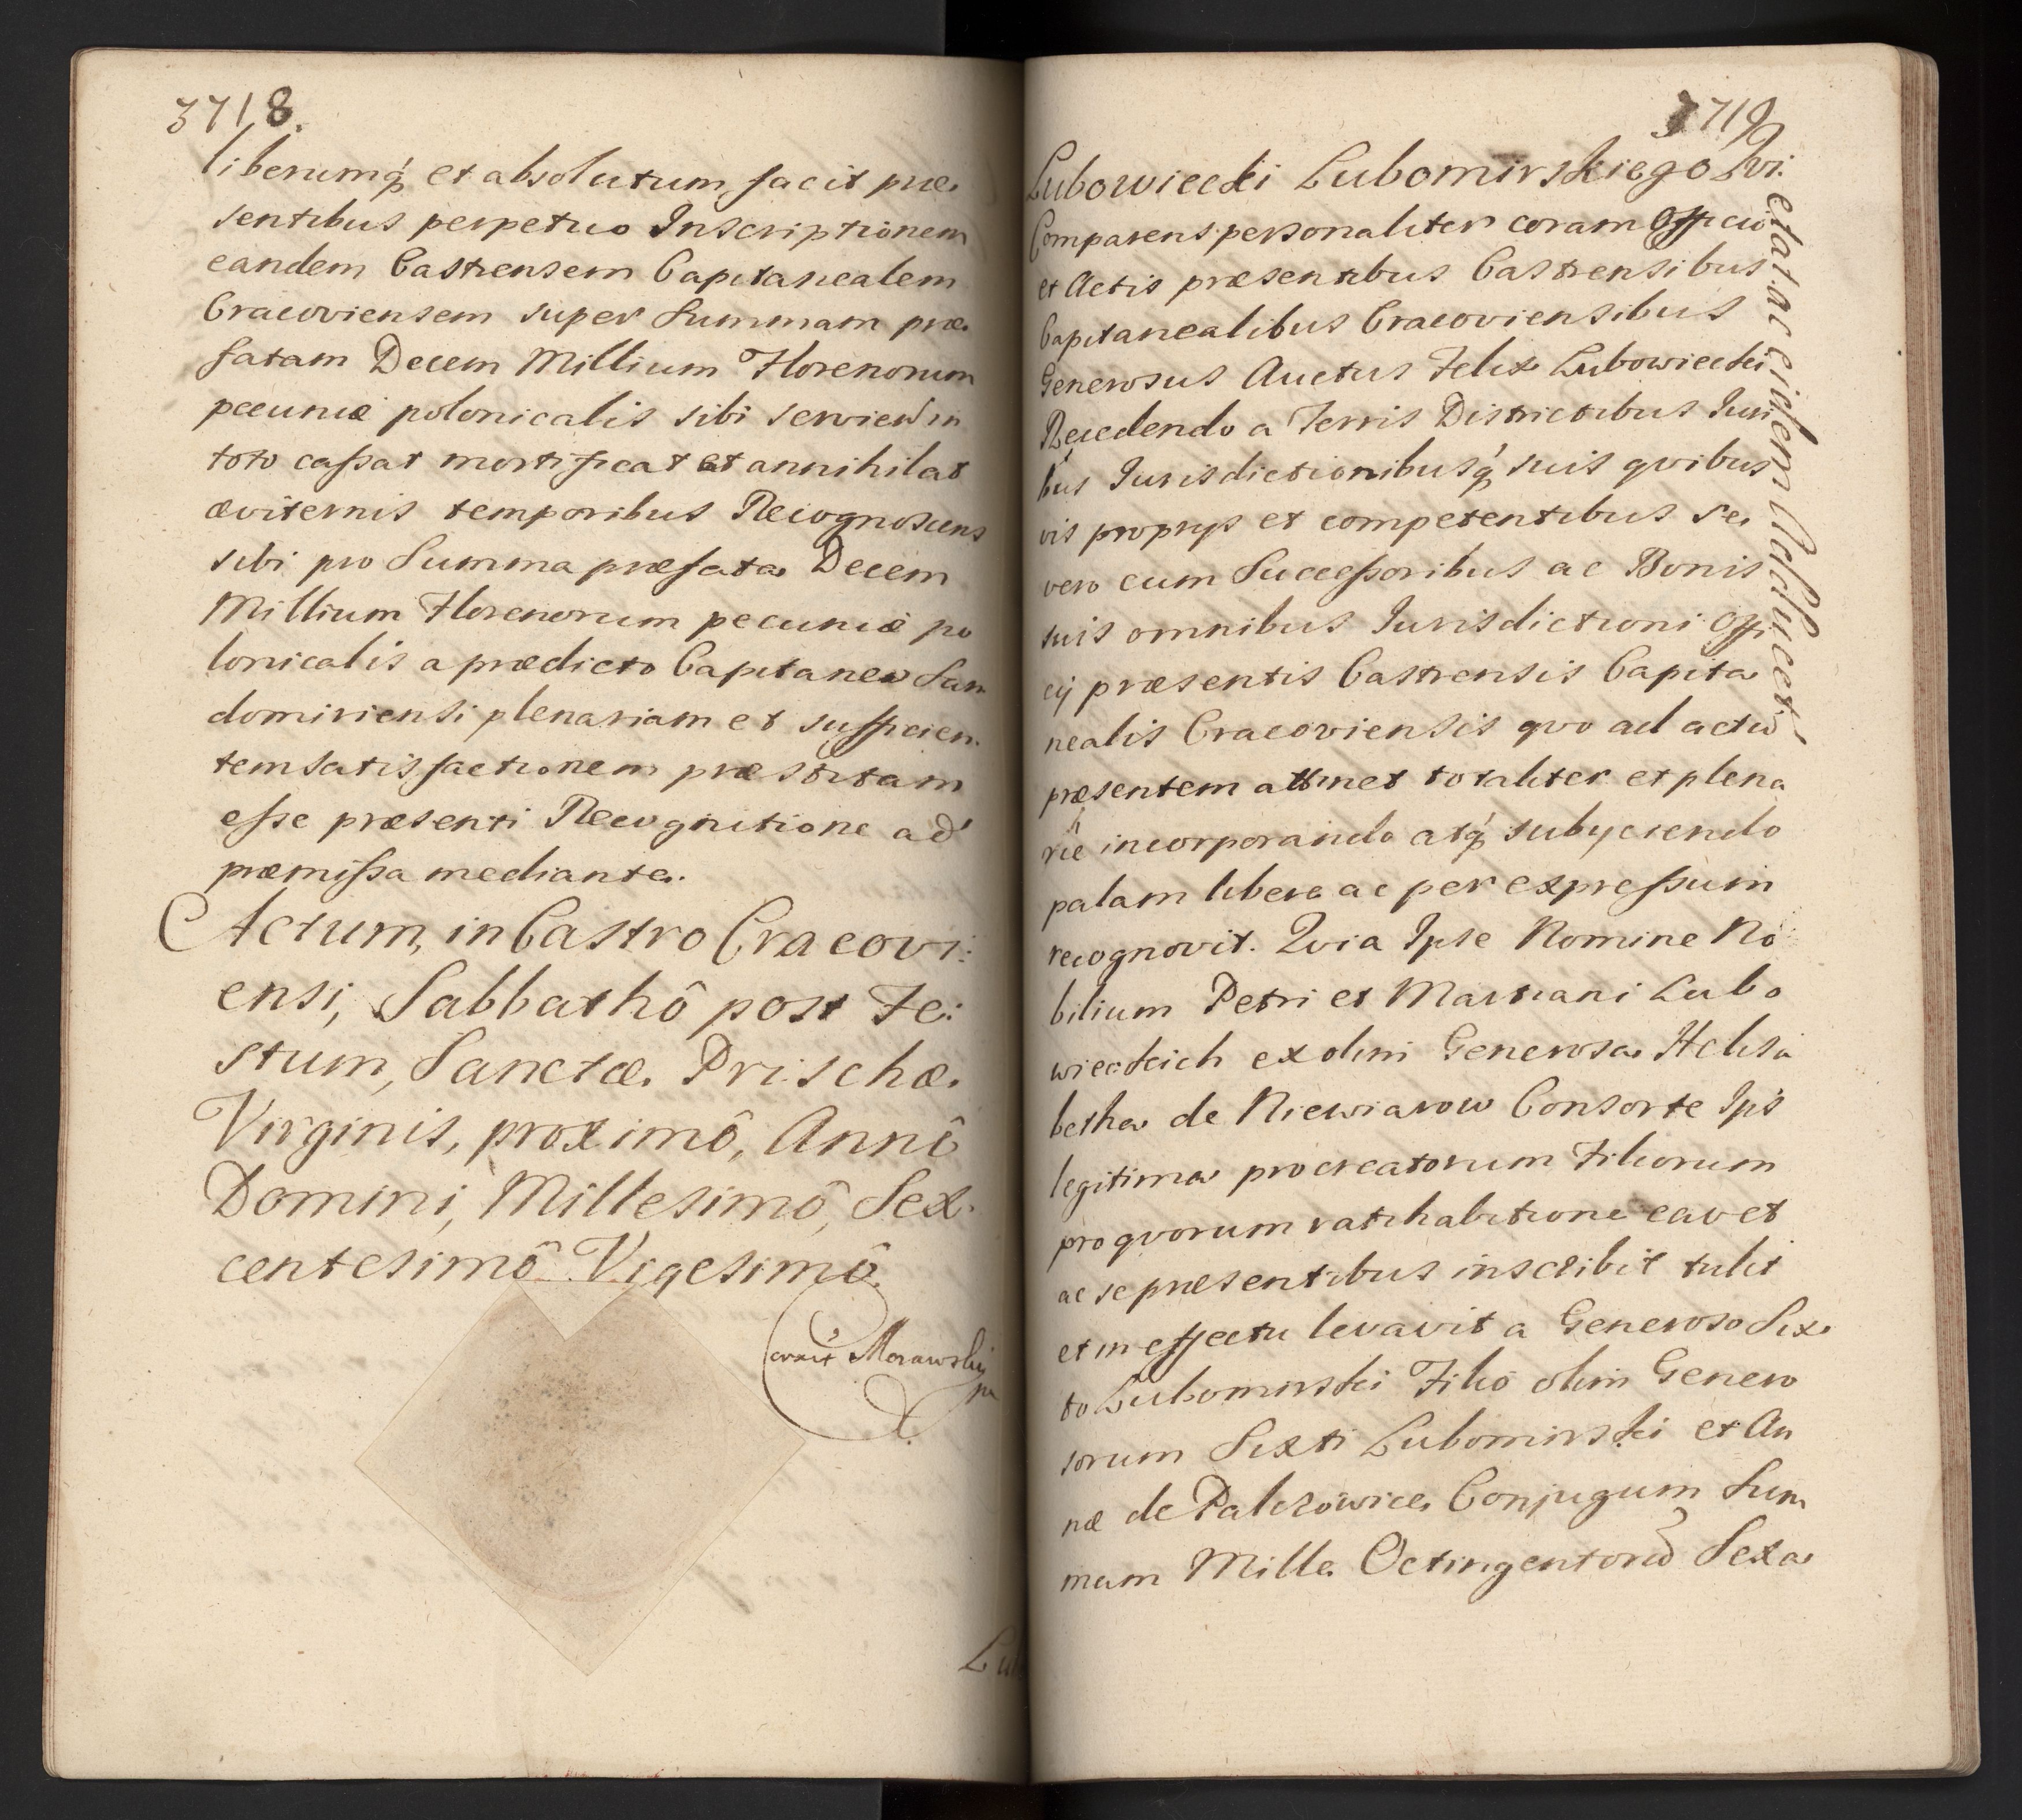 3718.
liberumq́ et absolutum facit præ.
sentibus perpetuo Inscriptionem
eandem Castrensem Capitanealem
Cracoviensem super Summam præ.
fatam Decem Millium Florenorum
pecuniæ polonicalis sibi servien in
toto caſsat mortificat et annihilat
æviternis temporibus Recognoscens
sibi pro Summa præfata Decem
Millium Florenorum pecuniæ po
lonicalis a prædicto Capitaneo San
domiriensi plenariam et sufficien.
tem satisfactionem præstitam
eſse præsenti Recognitione ad
præmiſsa mediante.
Actum, in Castro Cracovi:
ensi, Sabbathô post Fe:
stum, Sanctæ. Prischæ.
Virginis, proximô, Annô
Domini, Millesimô, Sex.
centesimô Vigesimô.
Morawskij
3719
Lubowiecki Lubomirskiego qvi.
etat ac eidem
Comparens personaliter coram Officio
et Actis præsentibus Castrensibus
Capitanealibus Cracoviensibus
Generosus Auctus Felix Lubowiecki
Recedendo a Terris Districtibus Juri
bus Jurisdictionibusq́ suis qvibus
vis proprijs et competentibus Se
vero cum Succeſsoribus ac Bonis
suis omnibus Jurisdictioni Offi
cij præsentis Castrensis Capita
nealis Cracoviensis qvo ad actū
præsentem attinet totaliter et plena
riè incorporando atq́ subijciendo
palam libere ac per expreſsum
recognovit. Qvia Ipse Nomine No
bilium Petri et Martiani Lubo
wieckich ex olim Generosa Helisa
betha de Niewiarow Consorte Ips
legitima procreatorum Filiorum
pro qvorum ratihabitione cavet
ac se præsentibus inscribit tulit
et in effectu levavit a Generoso Six.
to Lubomirski Filio olim Genero
sorum Sixti Lubomirski et An
næ de Palczowice Conjugum Sum
mam Mille Octingentorū Sexa